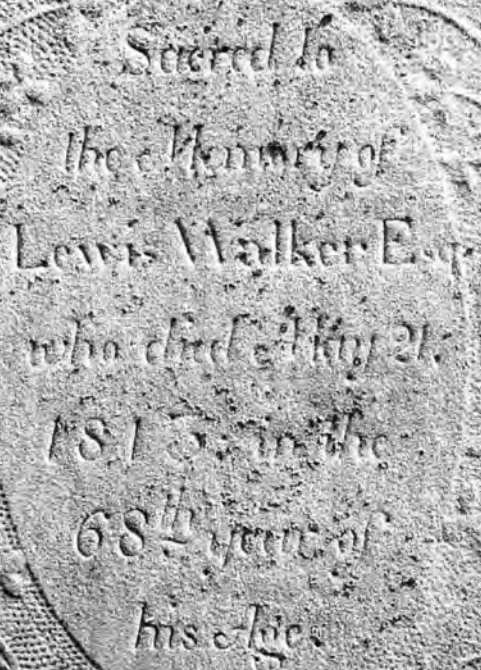 Sacred to
the Memory of
Lewis Walker Esq
who died May 21.
1813. in the
68th year of
his Age.